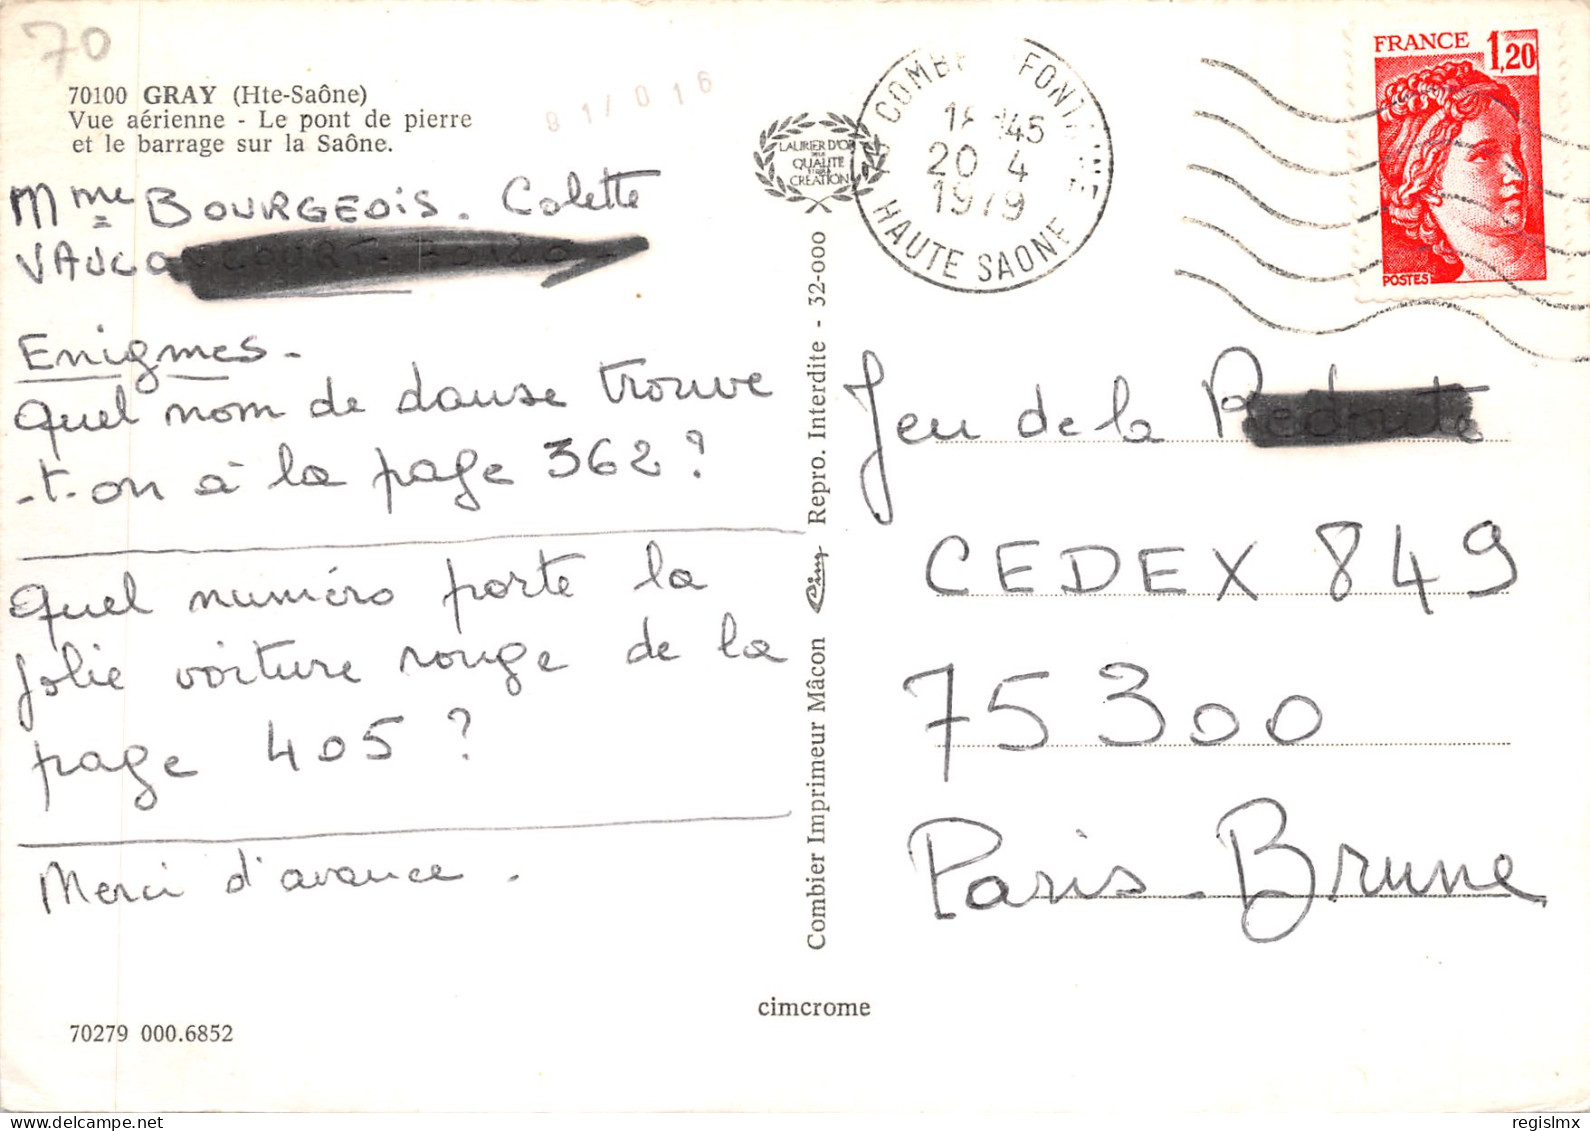 70
70100 GRAY (Hte-Saône)
Vue aérienne - Le pont de pierre
et le barrage sur la Saône.
Mme BOURGEOIS. Colette
Enigmes -
Quel nom de danse trouve
-t-on à la page 362 ?
Quel numéro porte la
jolie voiture rouge de la
page 405 ?
Merci d'avance.
70279 000.6852
LAURIER D'OR
QUALITE
CREATION
Combier Imprimeur Mâcon Cim Repro. Interdite - 32-000
cimcrome
FONTAINE
45
20 4
1979
HAUTE SAONE
FRANCE 1,20
POSTES
Jeu de la Redoute
CEDEX 849
75300
Paris-Brune
regislmx